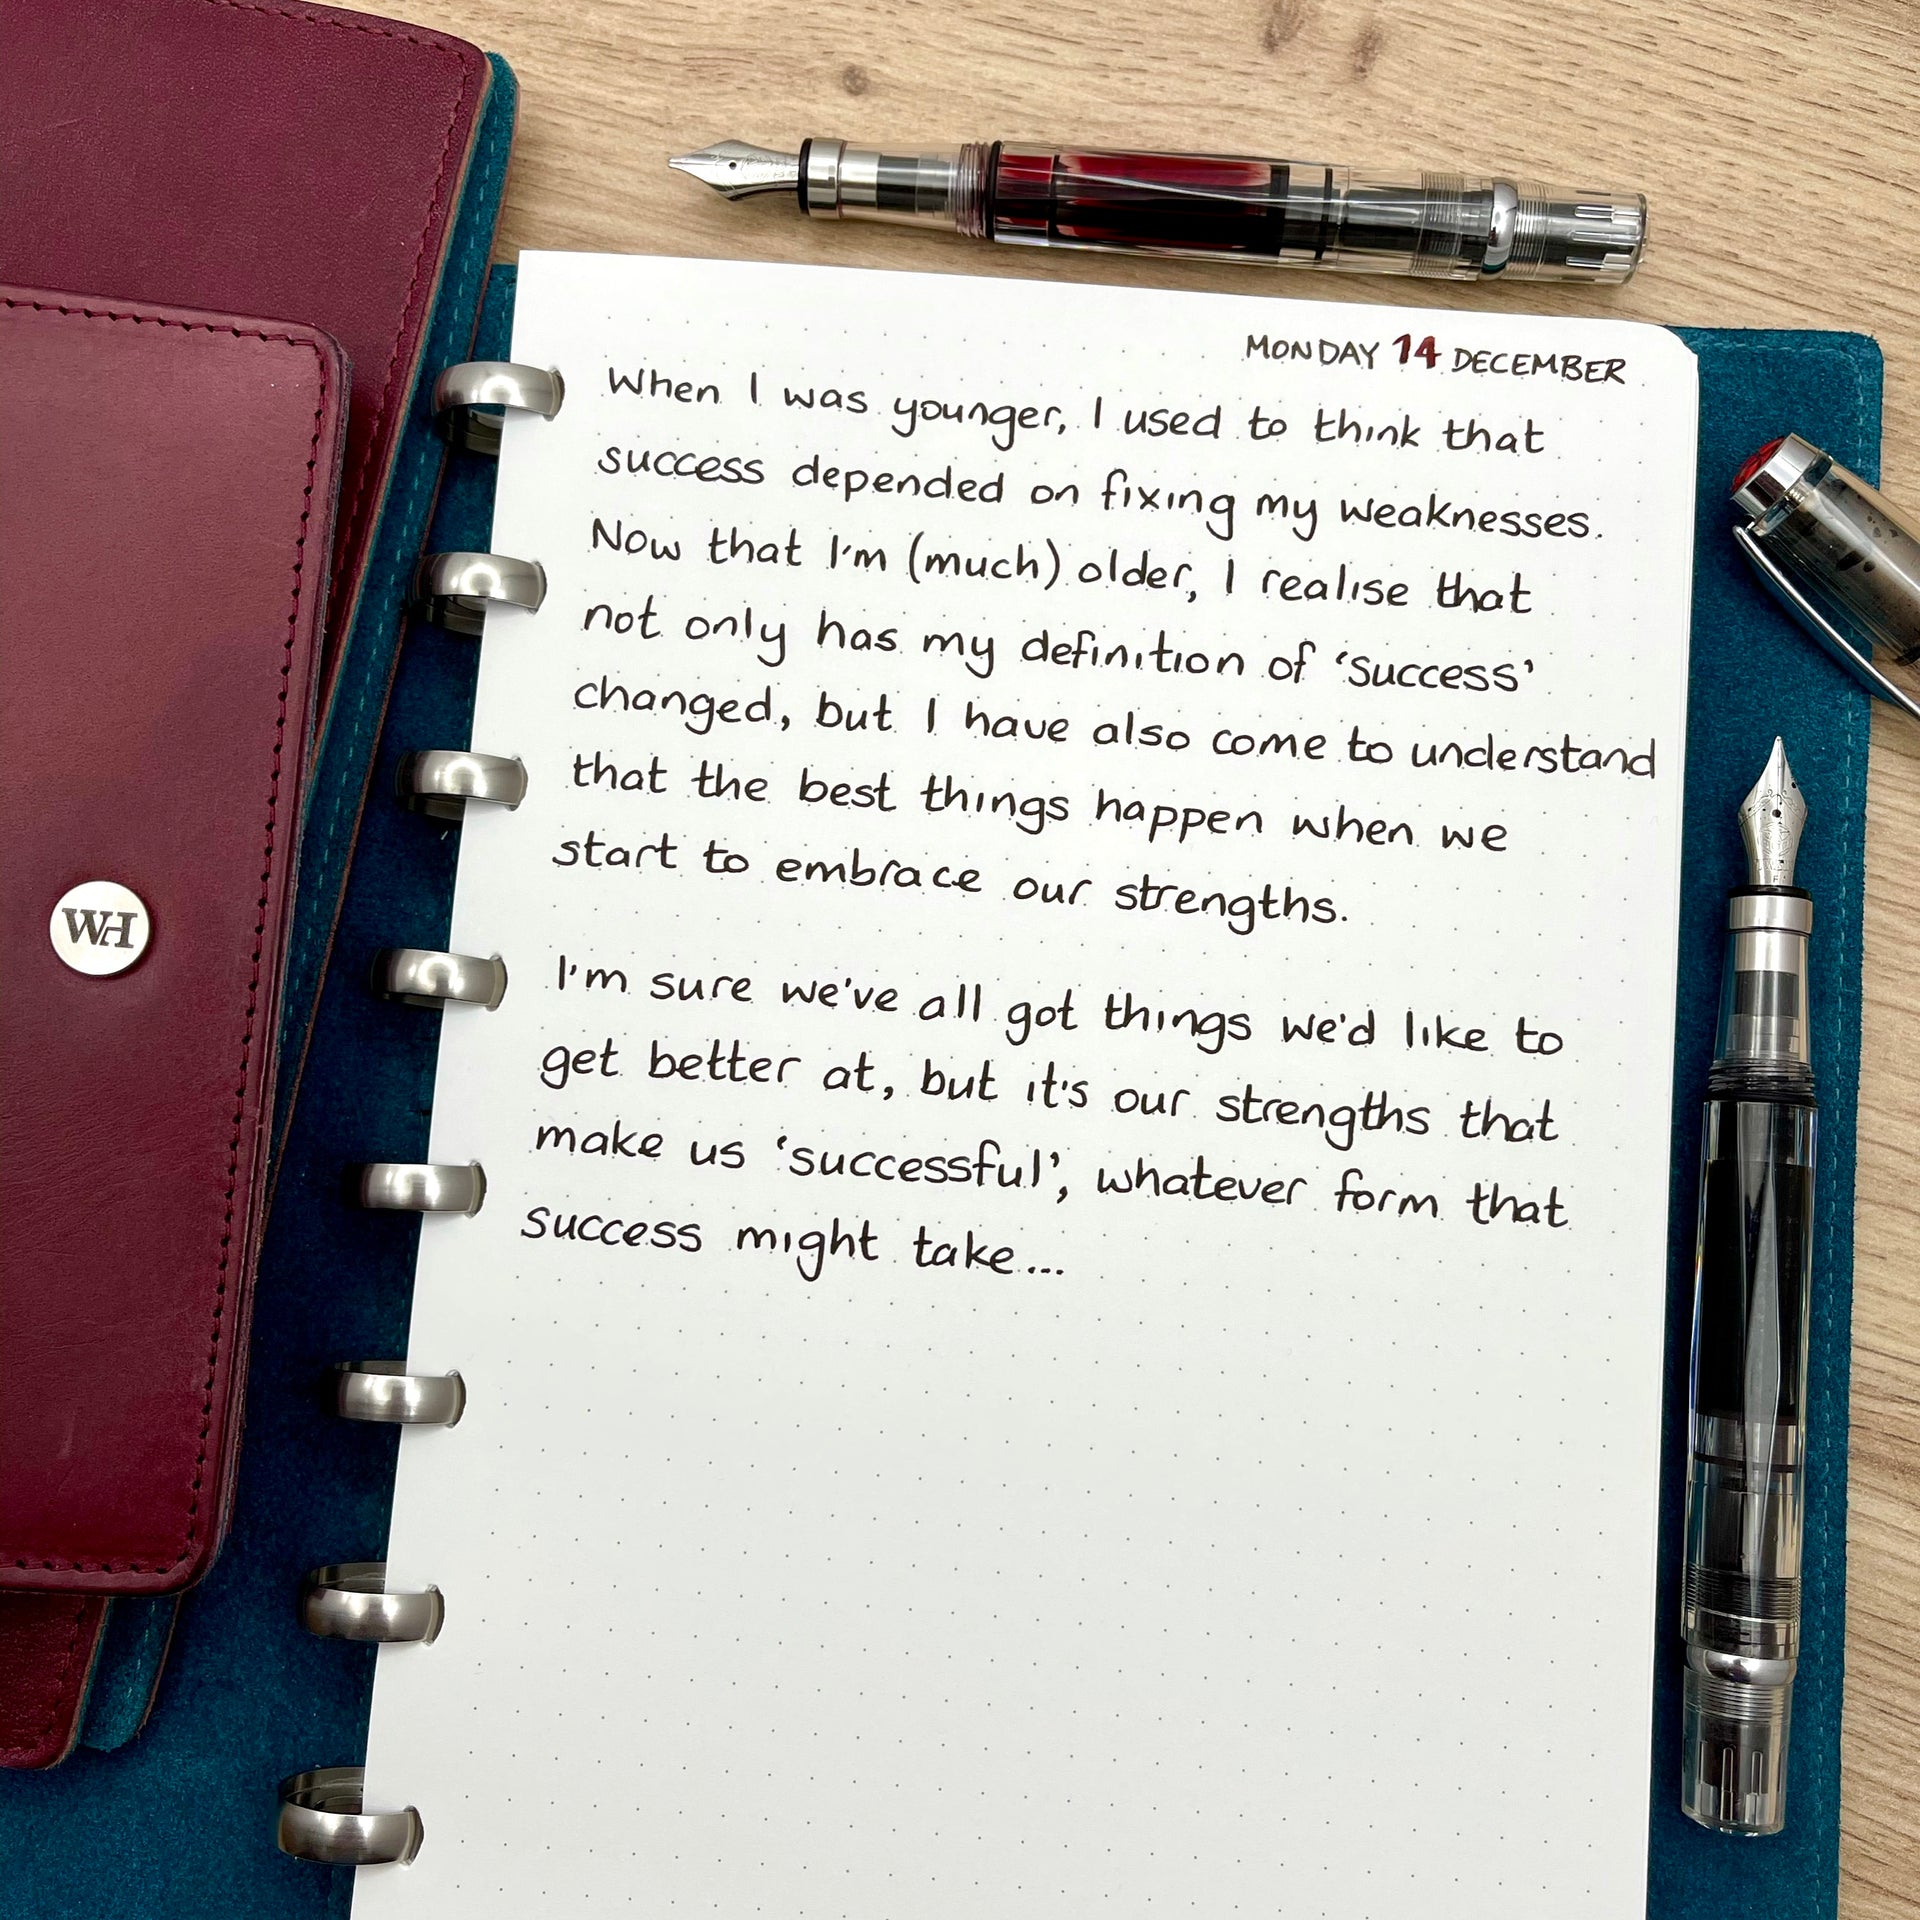 MONDAY 14 DECEMBER
When I was younger, I used to think that
success depended on fixing my weaknesses.
Now that I'm (much) older, I realise that
not only has my definition of 'success'
changed, but I have also come to understand
that the best things happen when we
start to embrace our strengths.
I'm sure we've all got things we'd like to
get better at, but it's our strengths that
make us 'successful', whatever form that
success might take...
WH